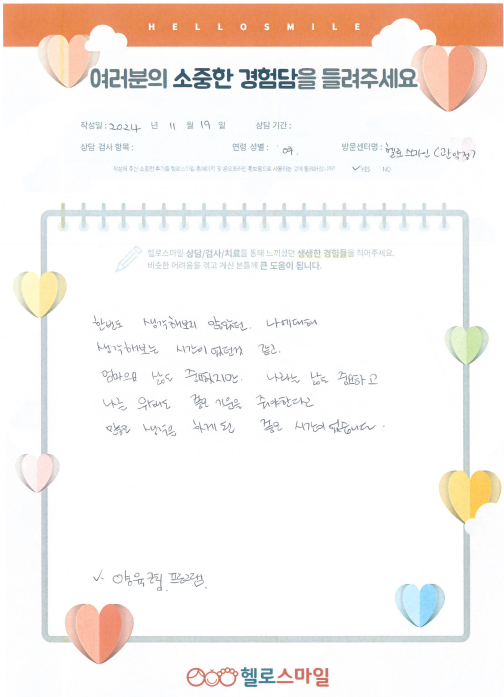 HELLOSMILE
여러분의 소중한 경험담을 들려주세요
작성일 : 2024 년 11 월 19 일 상담 기간 :
상담 검사 항목 : 연령 성별 : 여. 방문센터명 : 헬로스마일 (관악점)
작성해 주신 소중한 후기를 헬로스마일 홈페이지 및 온오프라인 홍보용으로 사용하는 것에 동의하십니까? ✓YES NO
헬로스마일 상담/검사/치료를 통해 느끼셨던 생생한 경험들을 적어주세요.
비슷한 어려움을 겪고 계신 분들께 큰 도움이 됩니다.
한번도 생각해보지 않았던. 나에대해
생각해보는 시간이 되었던것 같고.
엄마의 삶도 중요하지만. 나라는 삶도 중요하고
나를 위해도 좋은 기운을 줘야한다고
많은 생각을 하게 된 좋은 시간이 었습니다.
✓ 양육코칭 프로그램.
헬로스마일